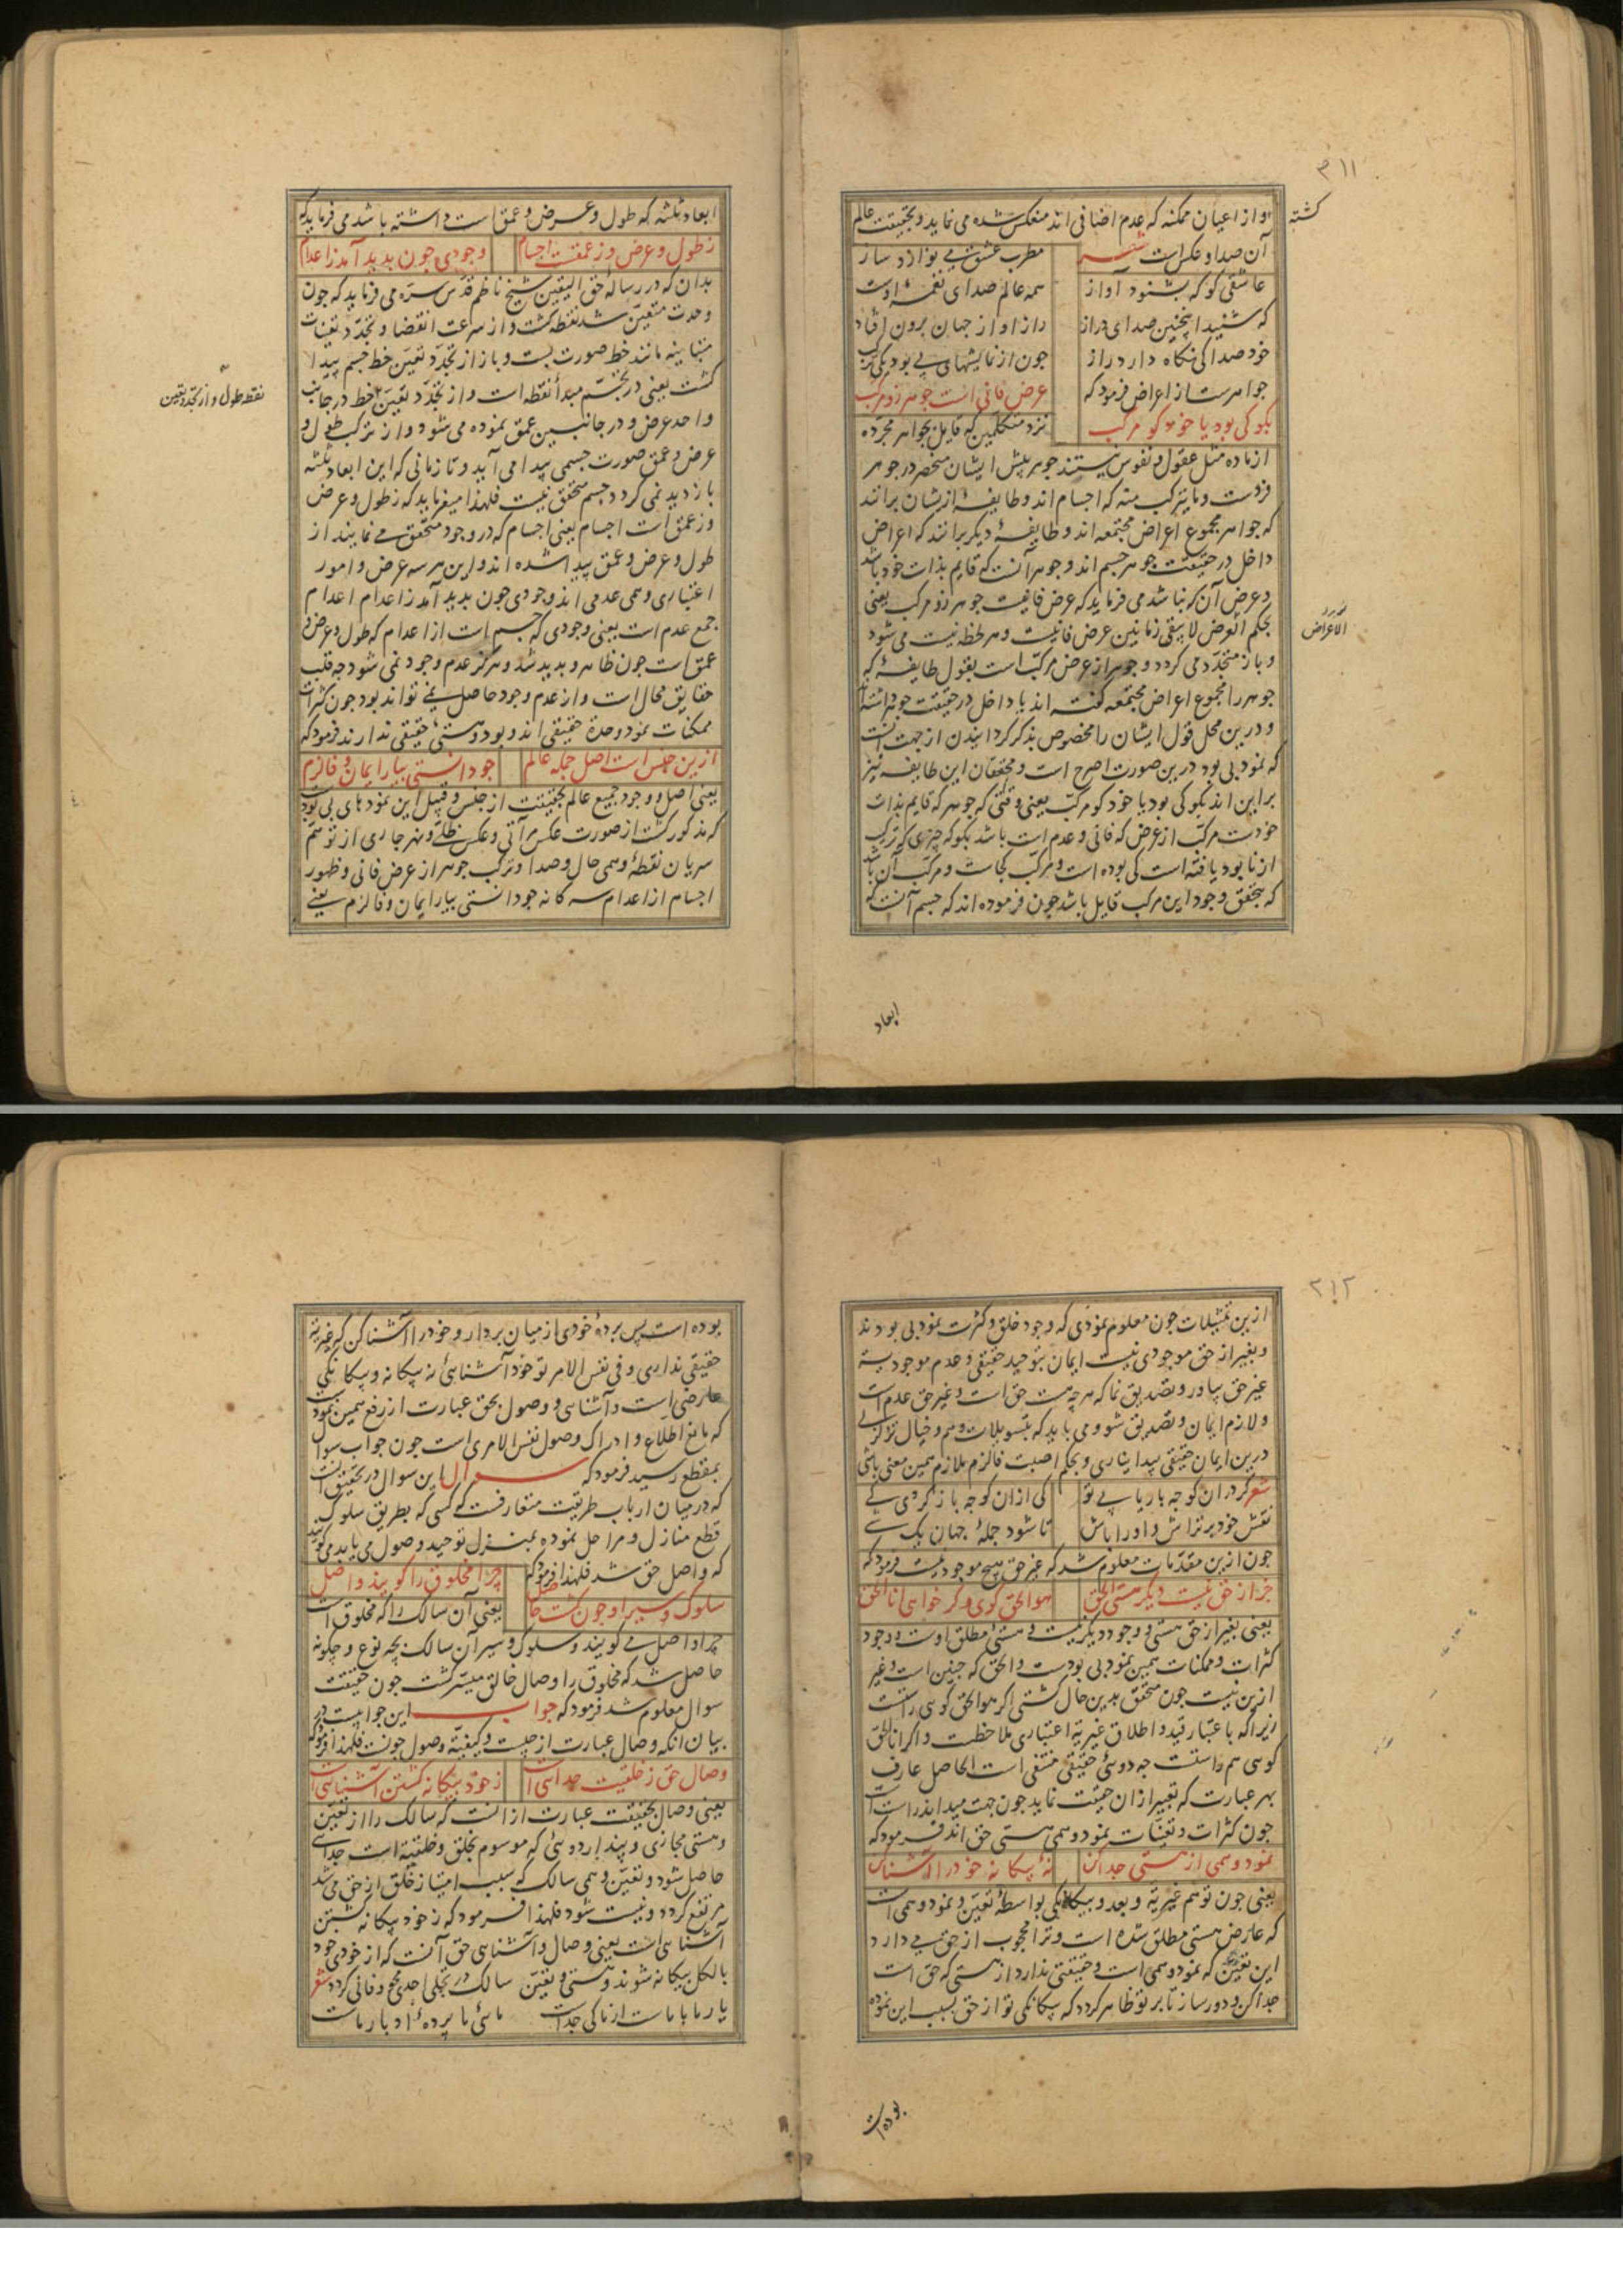 ۳۱۱
او از اعیان ممکنه که عدم اضافی اند منعکس شده می نماید و بحقیقت عالم
کشته
آن صدا و عکس است شعر
مطرب عشق می نوازد ساز
عاشقی کو که بشنود آواز
همه عالم صدای نغمهٔ اوست
که شنید اینچنین صدای دراز
راز او از جهان برون افتاد
خود صدا کی نگاه دارد راز
چون از نمایشهای بی بود یکی ترکب
جواهرست از اعراض فرمود که
عرض فانی است جوهر زو مرکب
بگو کی بود یا خود کو مرکب
نزد متکلمین که قایل بجواهر مجرده
از ماده مثل عقول و نفوس نیستند جوهر پیش ایشان منحصر در جوهر
فردست و ما یترکب منه که اجسام اند و طایفهٔ ازیشان برانند
که جواهر مجموع اعراض مجتمعه اند و طایفهٔ دیگر برانند که اعراض
داخل در حقیقت جوهر جسم اند و جوهر آنست که قایم بذات خود باشد
و عرض آن که نباشد می فرماید که عرض فانیست جوهر زو مرکب یعنی
بحکم العرض لا یبقی زمانین عرض فانیست و هر لحظه نیست می شود
الاعراض
و باز متجدد می گردد و جوهر از عرض مرکب است بقول طایفهٔ که
جوهر را مجموع اعراض مجتمعه گفته اند یا داخل در حقیقت جوهر داشته
و درین محل قول ایشان را مخصوص بذکر گردانیدن از جهت آنست
که نمود بی بود درین صورت اصرح است و محققان این طایفه نیز
براین اند بگو کی بود یا خود کو مرکب یعنی وقتی که جوهر که قایم بذات
خودست مرکب از عرض که فانی و عدم است باشد بگو که چیزی که ترکب
از نابود یافته است کی بوده است و مرکب کجاست و مرکب آن باشد
که بتحقق وجود این مرکب قایل باشد چون فرموده اند که جسم آنست که
ابعاد
ابعاد ثلثه که طول و عرض و عمق است داشته باشد می فرماید که
ز طول و عرض وز عمقست اجسام
وجودی چون پدید آمد ز اعدام
بدان که در رسالهٔ حق الیقین شیخ ناظم قدس سره می فرماید که چون
وحدت متعین شد نقطه گشت و از سرعت انقضا و تجدد تعینات
متباینه مانند خط صورت بست و باز از تجدد تعین خط جسم پیدا
گشت یعنی در تجسم مبدأ نقطه است و از تجدد تعین خط در جانب
نقطه طول و از تجدد تعین
واحد عرض و در جانبین عمق نموده می شود و از ترکب طول و
عرض و عمق صورت جسمی پیدا می آید و تا زمانی که این ابعاد ثلثه
باز دید نمی گردد جسم متحقق نیست فلهذا میفرماید که ز طول و عرض
وز عمق است اجسام یعنی اجسام که در وجود متحقق می نمایند از
طول و عرض و عمق پیدا شده اند و این هر سه عرض و امور
اعتباری وهمی عدمی اند وجودی چون پدید آمد ز اعدام اعدام
جمع عدم است یعنی وجودی که جسم است از اعدام که طول و عرض و
عمق است چون ظاهر و پدید شد و هرگز عدم وجود نمی شود چه قلب
حقایق محال است و از عدم وجود حاصل نمی تواند بود چون کثرات
ممکنات نمود وحدة حقیقی اند و بود و هستی حقیقی ندارند فرمود که
ازین جنس است اصل جمله عالم
چو دانستی بیار ایمان و فالزم
یعنی اصل و وجود جمیع عالم بحقیقت از جنس و قبیل این نمودهای بی بود
که مذکور گشت از صورت عکس مرآتی و عکس ظلی و نهر جاری از توهم
سریان نقطهٔ وهمی حال و صدا و ترکب جوهر از عرض فانی و ظهور
اجسام از اعدام سه گانه چو دانستی بیار ایمان و فالزم یعنی
۳۱۲
ازین تمثیلات چون معلوم نمودی که وجود خلق و کثرت نمود بی بودند
و بغیر از حق موجودی نیست ایمان بتوحید حقیقی و عدم موجودیة
غیر حق بیاور و تصدیق نما که هر چه هست حق است و غیر حق عدم است
و لازم ایمان و تصدیق شو و می باید که بتسویلات وهم و خیال تزلزلی
درین ایمان حقیقی پیدا نیاری و بحکم اصبت فالزم ملازم همین معنی باشی
شعر گر در ان کوچه باریابی تو
کی ازان کوچه باز گردی کی
نقش خود بر تراش و او را باش
تا شود جملهٔ جهان یک شی
چون ازین مقدمات معلوم شد که غیر حق هیچ موجود نیست فرمود که
جز از حق نیست دیگر هستی الحق
هو الحق گوی و گر خواهی انا الحق
یعنی بغیر از حق هستی و وجود دیگر نیست و هستی مطلق اوست و وجود
کثرات و ممکنات همین نمود بی بودست و الحق که چنین است و غیر
ازین نیست چون متحقق بدین حال گشتی اگر هو الحق گویی راست
زیرا که باعتبار تقید و اطلاق غیریة اعتباری ملاحظست و اگر انا الحق
گویی هم راستت چه دوئی حقیقی منتفی است الحاصل عارف
بهر عبارت که تعبیر ازان حقیقت نماید چون جهت میداند راست است
چون کثرات و تعینات نمود وهمی هستی حق اند فرمود که
نمود وهمی از هستی جدا کن
نهٔ بیگانه خود را آشنا کن
یعنی چون توهم غیریة و بعد و بیگانگی بواسطهٔ تعین و نمود وهمی است
که عارض هستی مطلق شده است و ترا محجوب از حق می دارد
این تعین که نمود وهمی است و حقیقتی ندارد از هستی که حق است
جدا کن و دور ساز تا بر تو ظاهر گردد که بیگانگی تو از حق بسبب این نموده
بوده است
بوده است پس پردهٔ خودی از میان بردار و خود را آشنا کن که غیریة
حقیقی نداری و فی نفس الامر تو خود آشنائی نه بیگانه و بیگانگی
عارضی است و آشنایی و وصول بحق عبارت از رفع همین نمودست
که مانع اطلاع و ادراک وصول نفس الامری است چون جواب سوال
بمقطع رسید فرمود که سوال این سوال در تحقیق آنست
که در میان ارباب طریقت متعارفست که کسی که بطریق سلوک
قطع منازل و مراحل نموده بمنزل توحید و وصول می یابد می گویند
که واصل حق شد فلهذا فرمود که
چرا مخلوق را گویند واصل
سلوک و سیر او چون گشت حاصل
یعنی آن سالک را که مخلوق است
چرا واصل می گویند و سلوک و سیر آن سالک بچه نوع و چگونه
حاصل شد که مخلوق را وصال خالق میسر گشت چون حقیقت
سوال معلوم شد فرمود که جواب این جوابیست در
بیان آنکه وصال عبارت از چیست و کیفیة وصول چونست فلهذا فرمود که
وصال حق ز خلقیت جدائی است
ز خود بیگانه گشتن آشنایی است
یعنی وصال بحقیقت عبارت از آنست که سالک را از تعین
و هستی مجازی و پندار دوئی که موسوم بخلق و خلقیة است جدایی
حاصل شود و تعین وهمی سالک که سبب امتیاز خلق از حق می شد
مرتفع گردد و نیست شود فلهذا فرمود که ز خود بیگانه گشتن
آشنایی است یعنی وصال و آشنایی حق آنست که از خودی خود
بالکل بیگانه شوند و هستی و تعین سالک در تجلی احدی محو و فانی گردد شعر
یار ما با ماست از ما کی جداست
مائی ما پردهٔ ادبار ماست